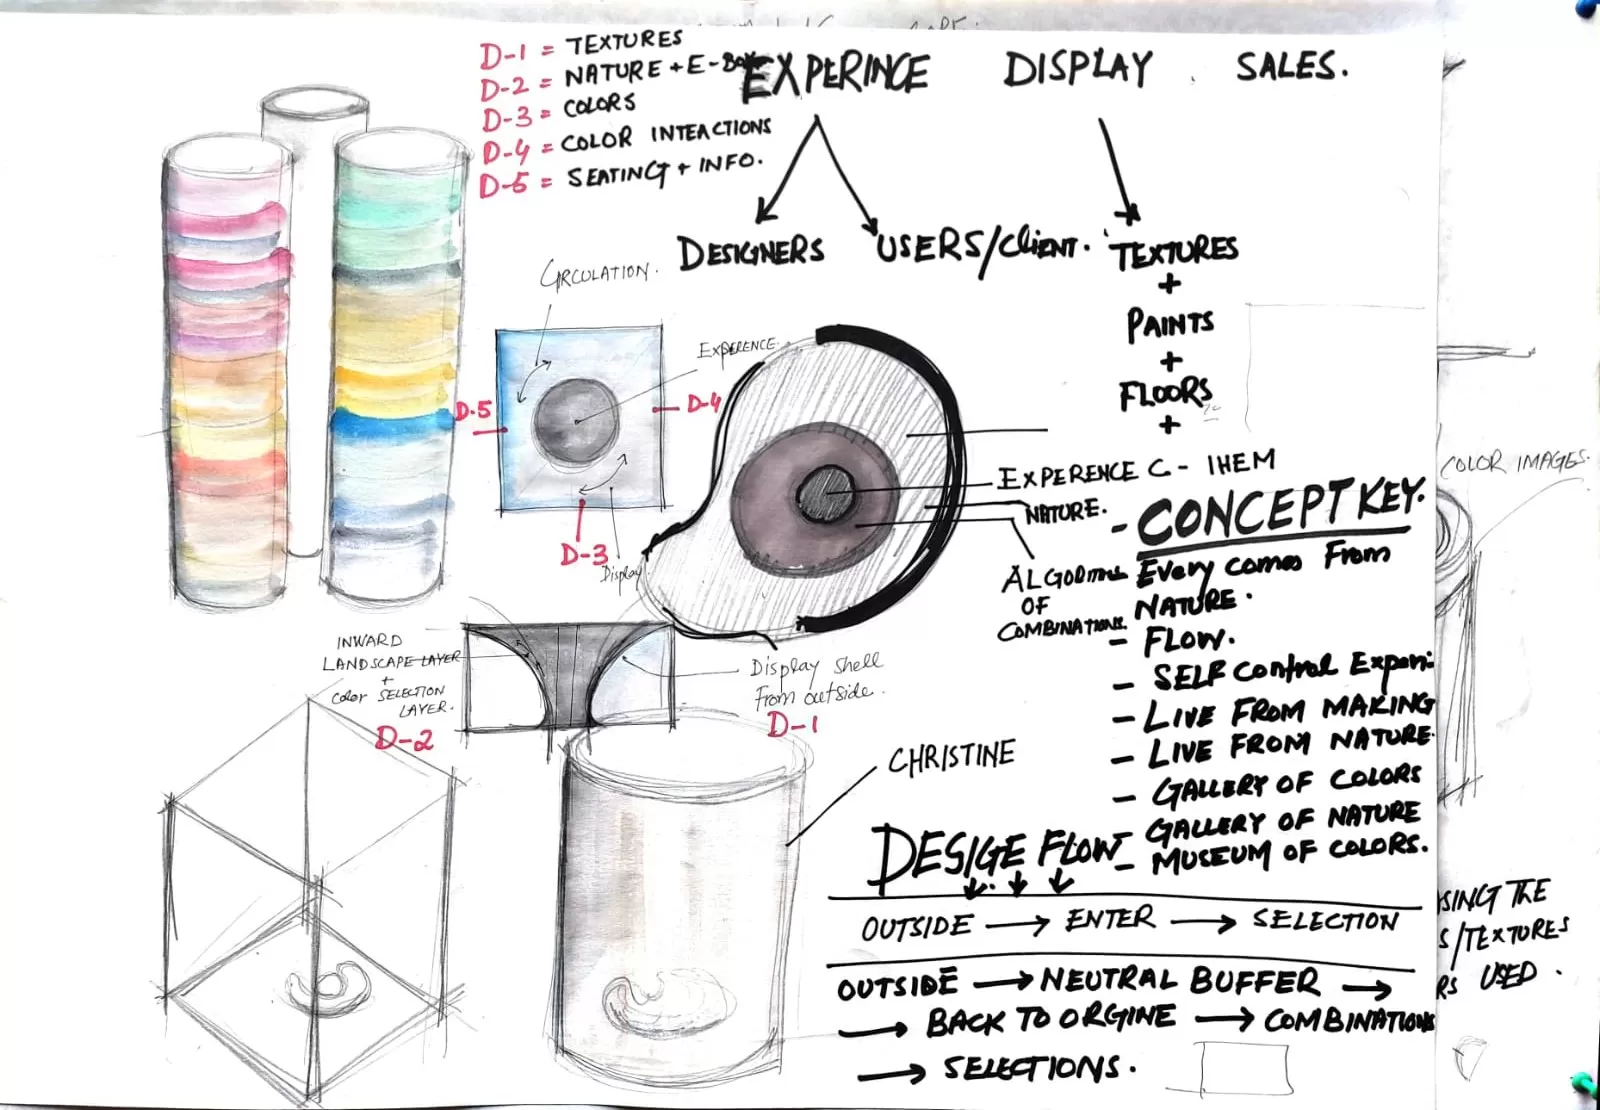 D-1 = TEXTURES
D-2 = NATURE + E-
D-3 = COLORS
D-4 = COLOR INTEACTIONS
D-5 = SEATING + INFO.
EXPERINCE DISPLAY . SALES.
DESIGNERS USERS/Client.
TEXTURES
+
PAINTS
+
FLOORS
+
CIRCULATION.
EXPERENCE
D.5
D-4
D-3
Display
EXPERENCE C - IHEM
NATURE.
ALGORITHMS
OF
COMBINATIONS.
- CONCEPT KEY.
Every comes From
NATURE.
- FLOW.
- SELF Control Experi
- LIVE FROM MAKING
- LIVE FROM NATURE
- GALLERY OF COLORS
GALLERY OF NATURE
- MUSEUM OF COLORS.
COLOR IMAGES.
INWARD
LANDSCAPE LAYER
+
Color SELECTION
LAYER.
D-2
Display shell
From outside.
D-1
CHRISTINE
DESIGE FLOW
OUTSIDE → ENTER → SELECTION
OUTSIDE → NEUTRAL BUFFER →
→ BACK TO ORGINE → COMBINATIONS
→ SELECTIONS.
SING THE
S/TEXTURES
RS USED.